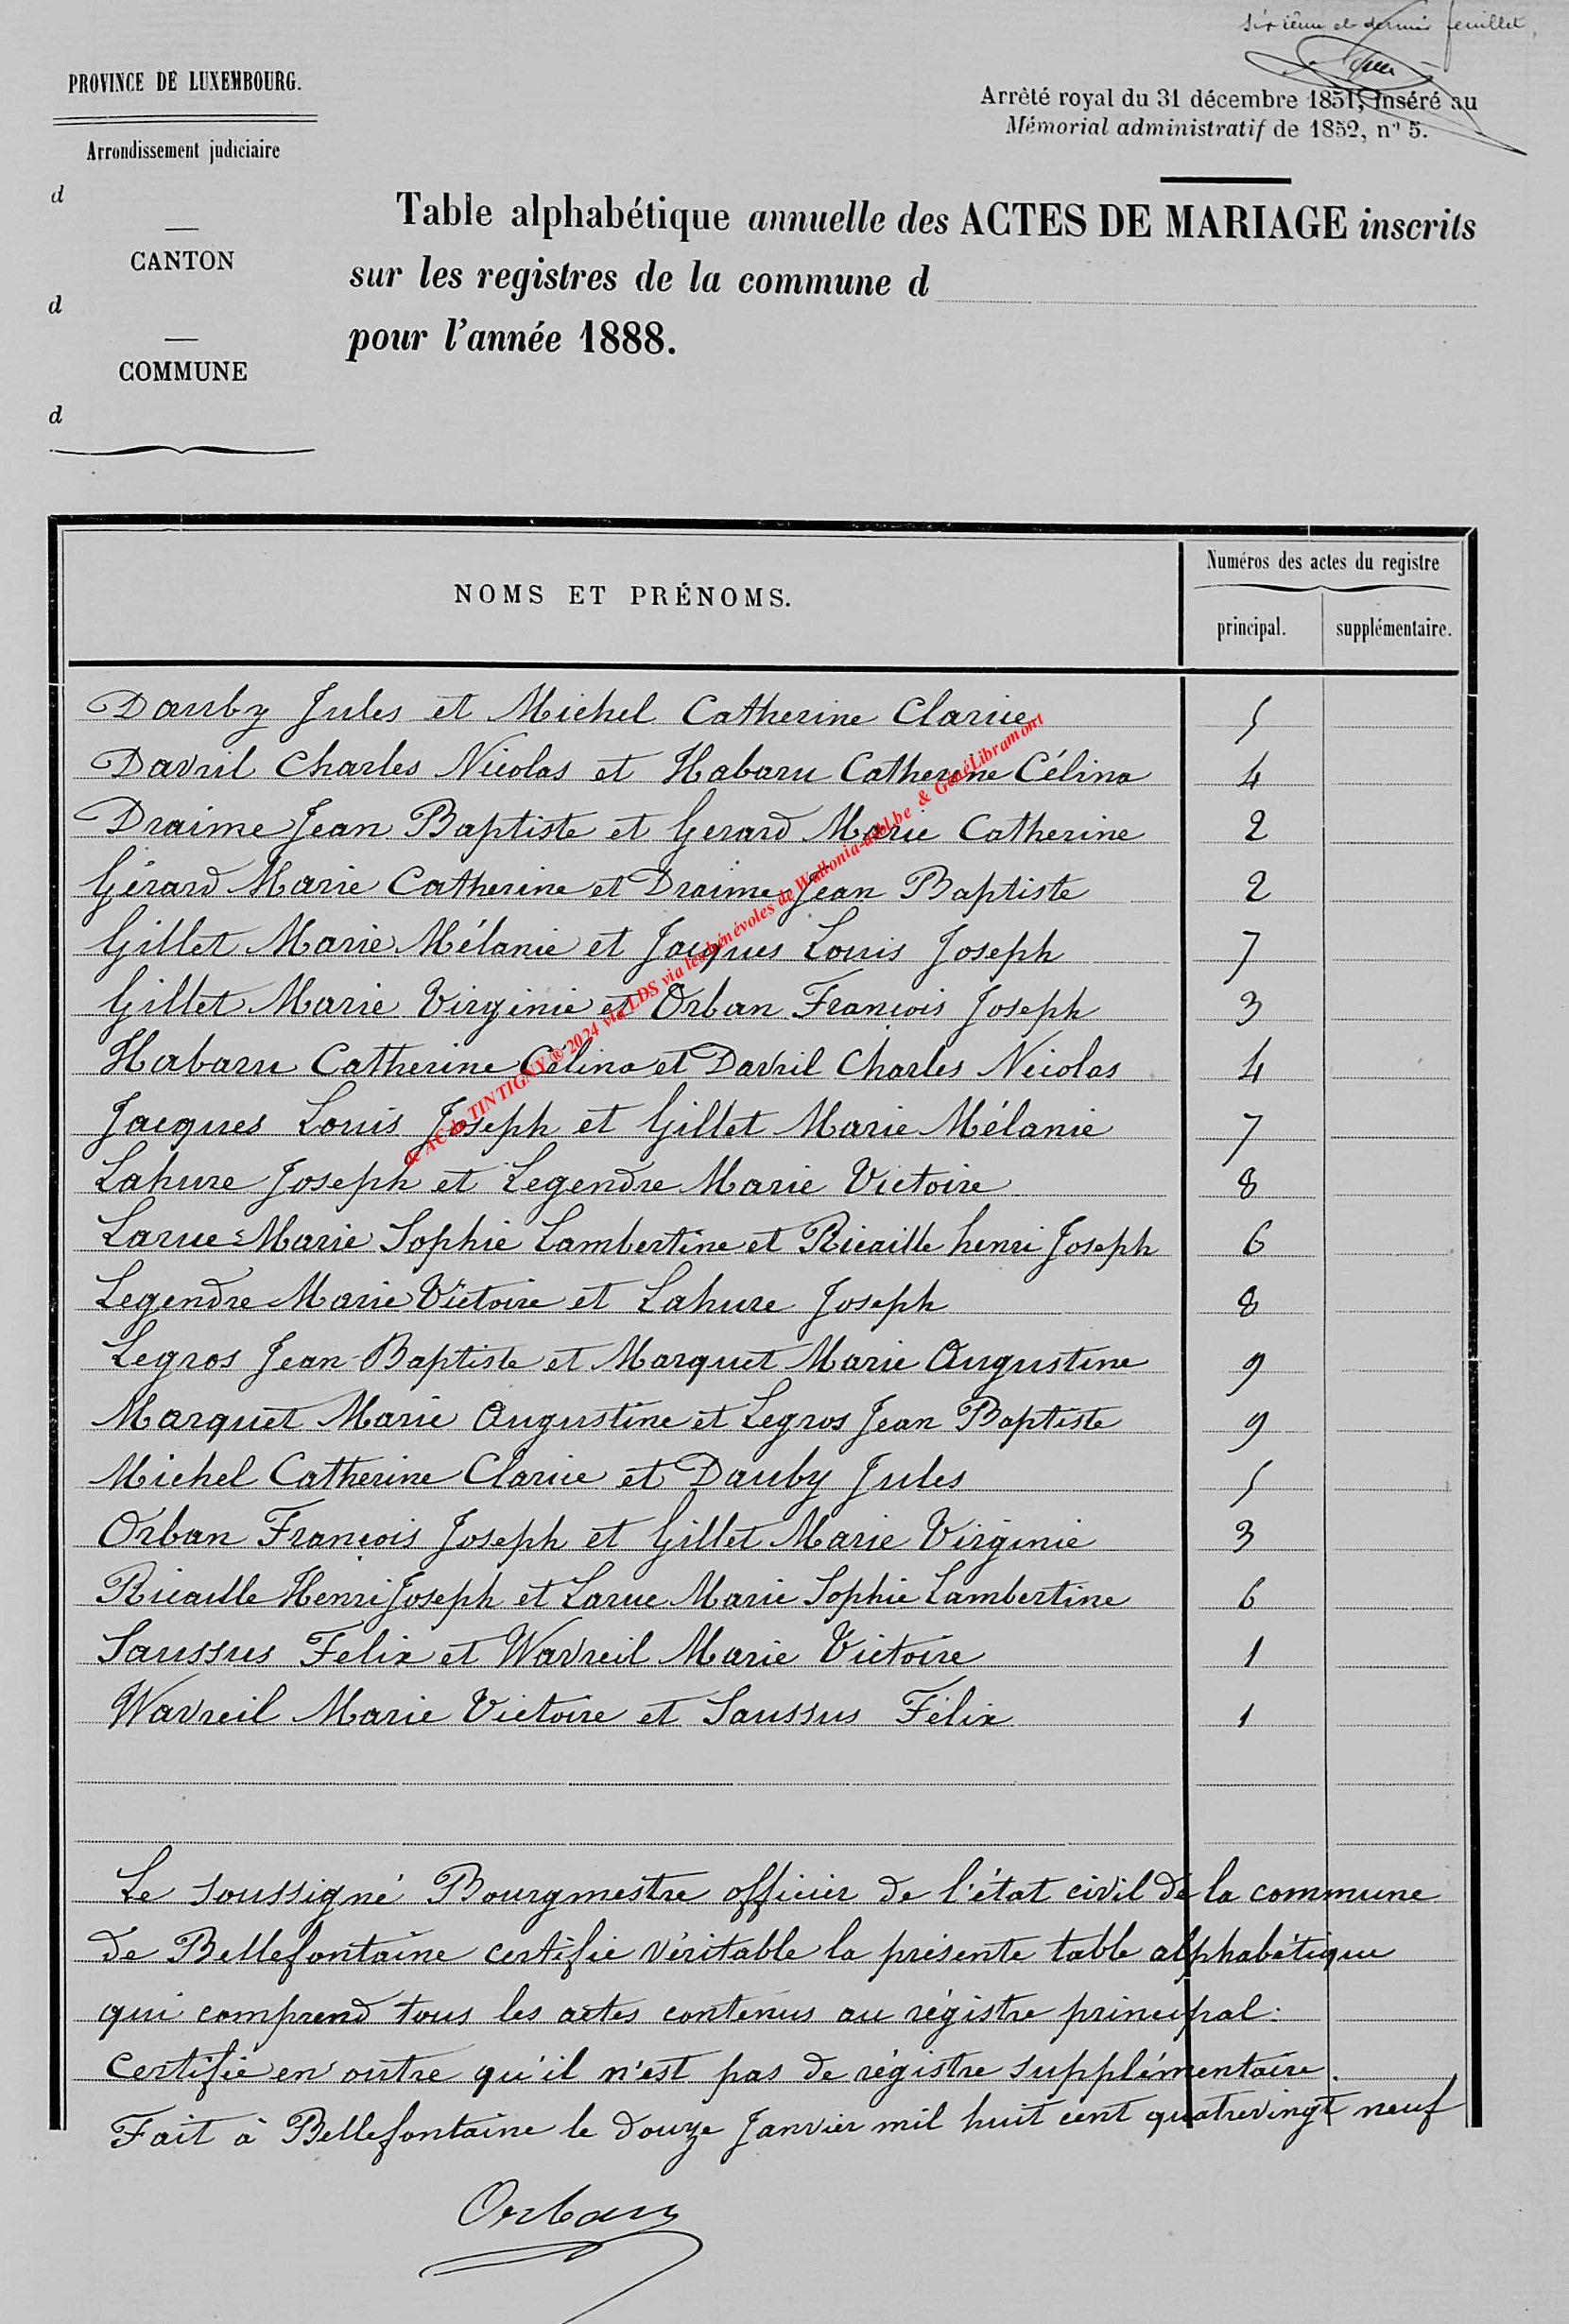 sixième et dernier feuillet,
PROVINCE DE LUXEMBOURG.
Arrondissement judiciaire
d
CANTON
d
COMMUNE
d
Arrêté royal du 31 décembre 1851, inséré au
Mémorial administratif de 1852, nº 5.
Table alphabétique annuelle des ACTES DE MARIAGE inscrits
sur les registres de la commune d
pour l'année 1888.
NOMS ET PRÉNOMS.
Numéros des actes du registre
principal. supplémentaire.
Dauby Jules et Michel Catherine Clarice 5
Davril Charles Nicolas et Habaru Catherine Célina 4
Draime Jean Baptiste et Gerard Marie Catherine 2
Gérard Marie Catherine et Draime Jean Baptiste 2
Gillet Marie Mélanie et Jacques Louis Joseph 7
Gillet Marie Virginie et Orban François Joseph 3
Habaru Catherine Célina et Davril Charles Nicolas 4
Jacques Louis Joseph et Gillet Marie Mélanie 7
Lahure Joseph et Legendre Marie Victoire 8
Larue Marie Sophie Lambertine et Ricaille henri Joseph 6
Legendre Marie Victoire et Lahure Joseph 8
Legros Jean Baptiste et Marquet Marie Augustine 9
Marquet Marie Augustine et Legros Jean Baptiste 9
Michel Catherine Clarice et Dauby Jules 5
Orban François Joseph et Gillet Marie Virginie 3
Ricaille Henri Joseph et Larue Marie Sophie Lambertine 6
Saussus Felix et Wavreil Marie Victoire 1
Wavreil Marie Victoire et Saussus Félix 1
Le soussigné Bourgmestre officier de l'état civil de la commune
de Bellefontaine certifie véritable la présente table alphabétique
qui comprend tous les actes contenus au régistre principal.
Certifie en outre qu'il n'est pas de régistre supplémentaire.
Fait à Bellefontaine le douze Janvier mil huit cent quatrevingt neuf
Orban
de AC de TINTIGNY ® 2024 via LDS via les bénévoles de Wallonia-asbl.be & GénéLibramont